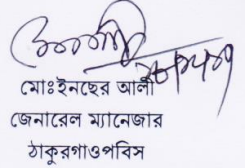 মোঃইনছের আলী
জেনারেল ম্যানেজার
ঠাকুরগাওপবিস